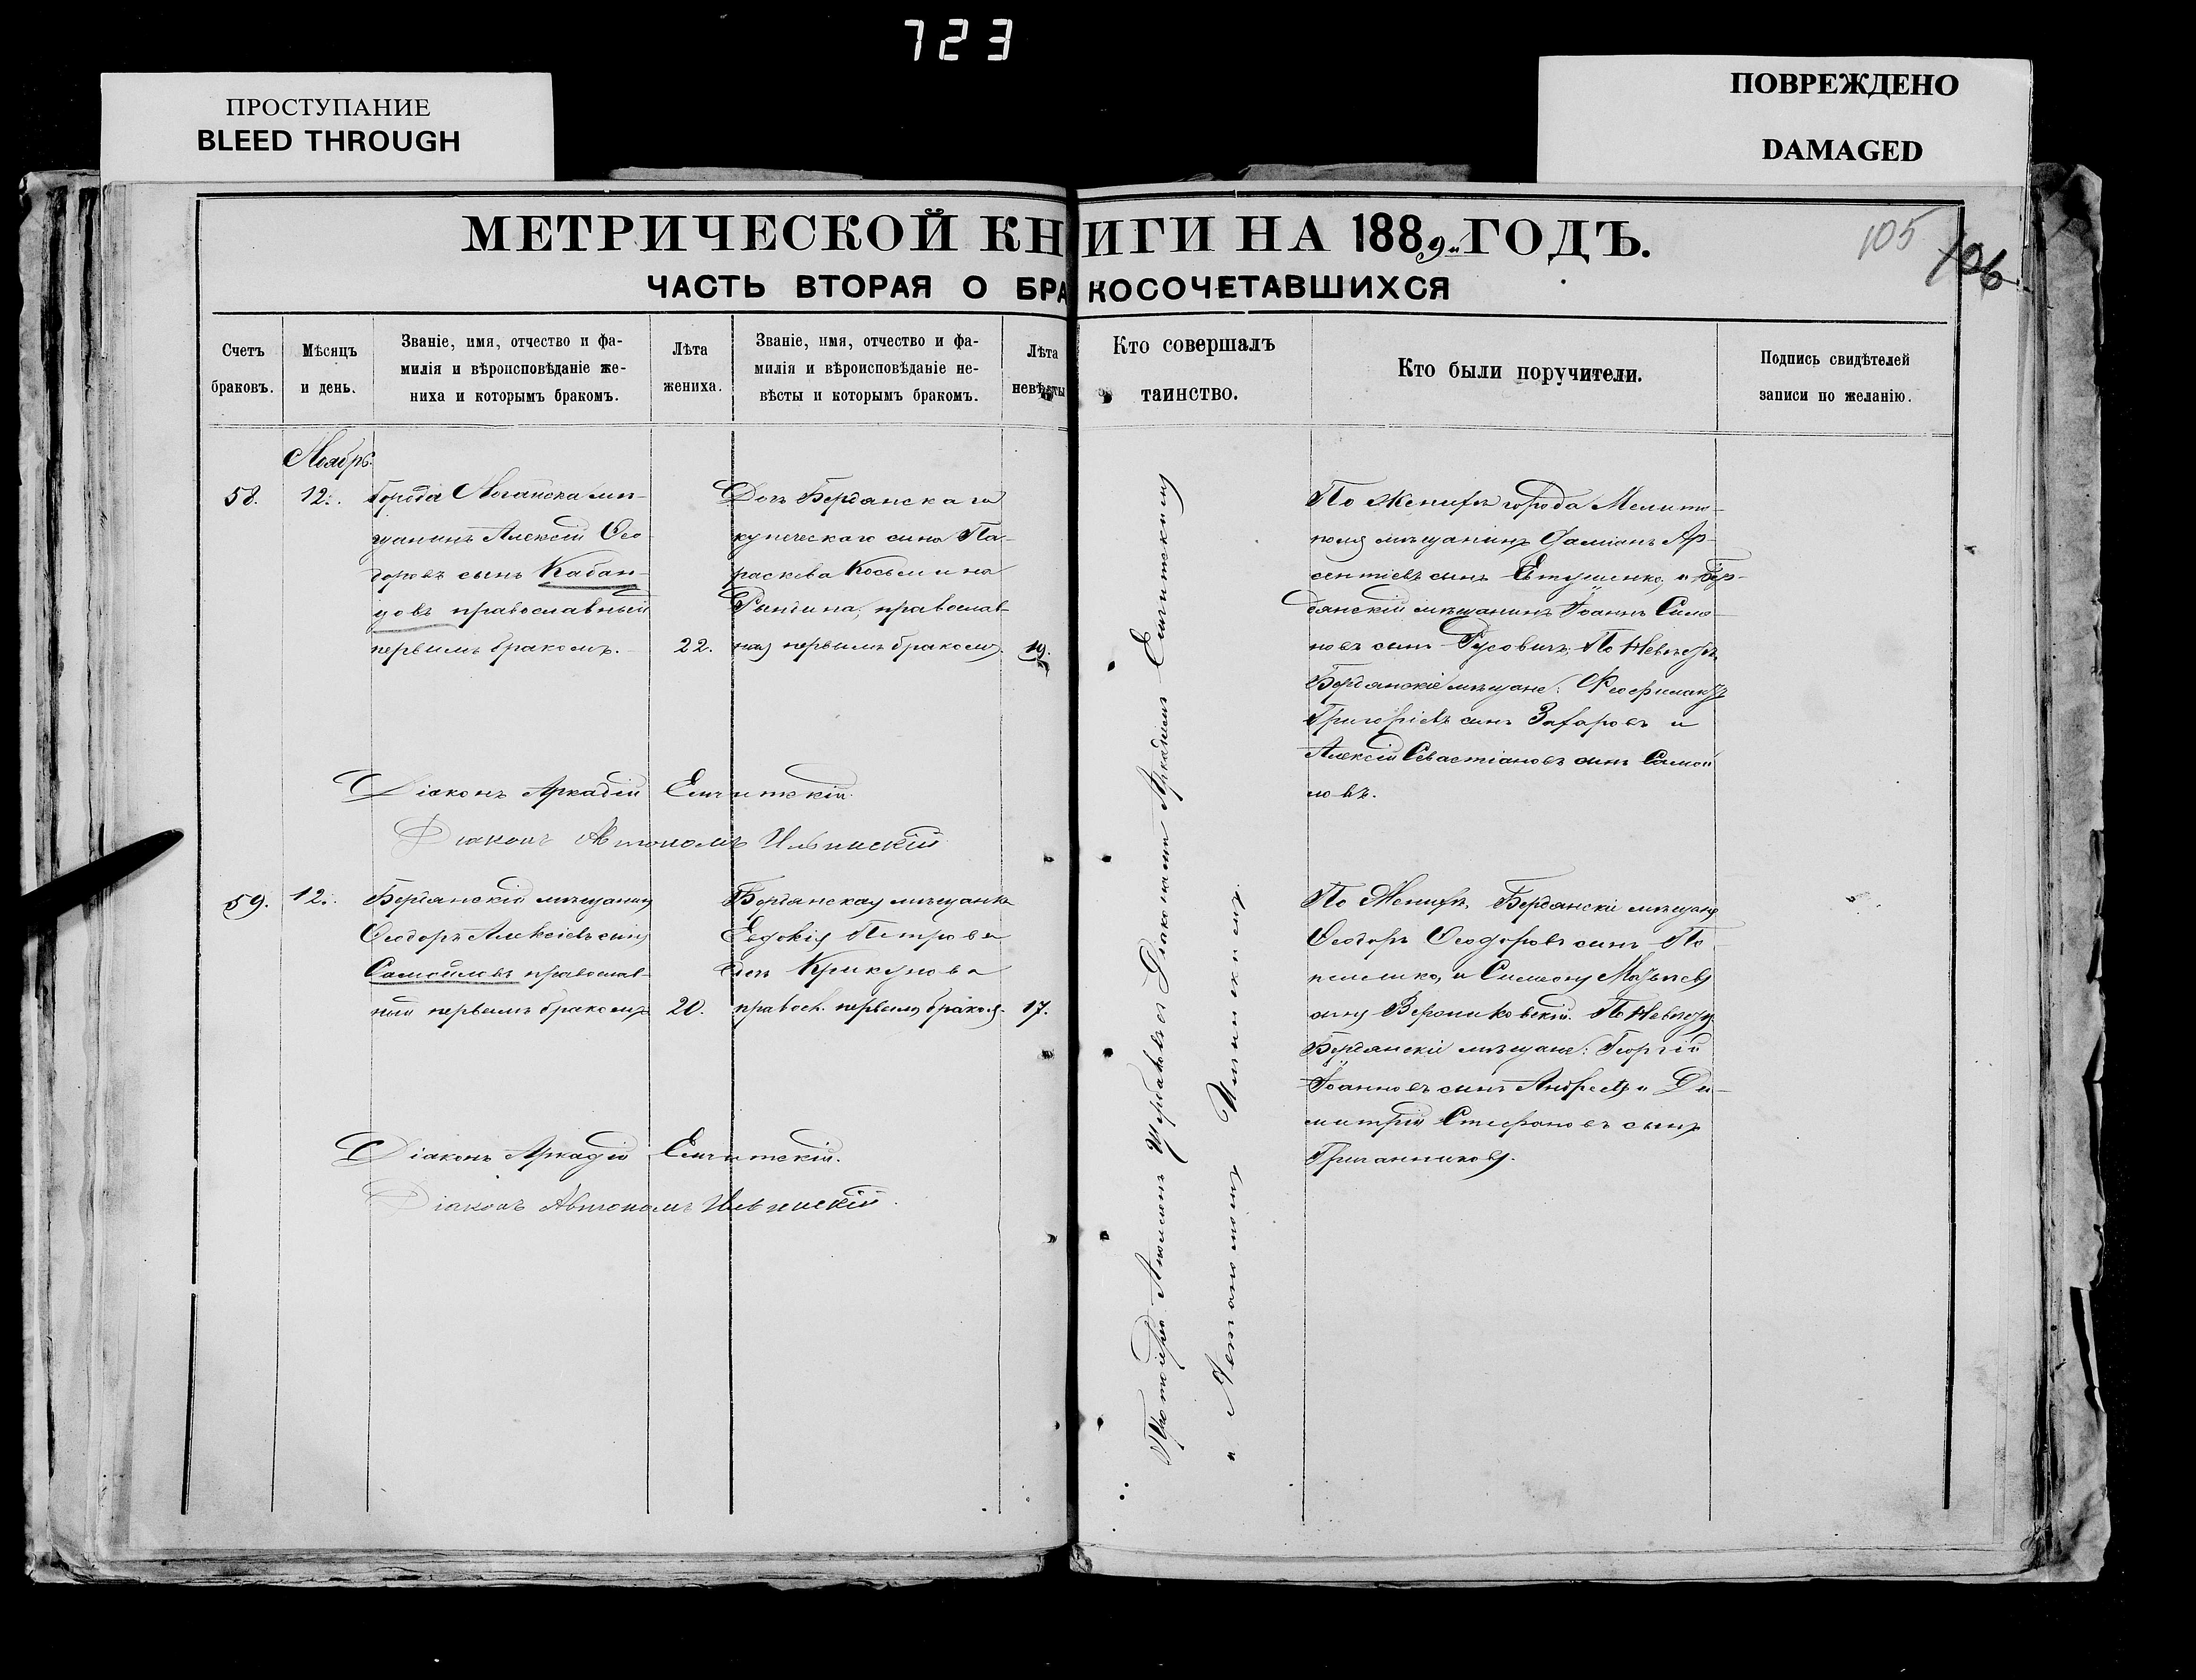 723
ПРОСТУПАНИЕ
BLEED THROUGH
ПОВРЕЖДЕНО
DAMAGED
МЕТРИЧЕСКОЙ КНИГИ НА 1889 ГОДЪ.
105
106
ЧАСТЬ ВТОРАЯ О БРАКОСОЧЕТАВШИХСЯ
Счетъ
браковъ.
Мѣсяцъ
и день.
Званіе, имя, отчество и фа-
милія и вѣроисповѣданіе же-
ниха и которымъ бракомъ.
Лѣта
жениха.
Званіе, имя, отчество и фа-
милія и вѣроисповѣданіе не-
вѣсты и которымъ бракомъ.
Лѣта
невѣсты
Кто совершалъ
таинство.
Кто были поручители.
Подпись свидѣтелей
записи по желанію.
Ноябрь.
58.
12.
Города Ногайска мѣ-
щанинъ Алексій Ѳео-
доровъ сынъ Кабан-
цовъ православный
первымъ бракомъ.
22.
Дочь Бердянскаго
купеческаго сына Па-
раскева Косьмина
православ-
ная первымъ бракомъ.
19.
По Женихѣ города Мелито-
поля мѣщанинъ Даміанъ Ар-
сентіевъ сынъ Евтушенко, и Бер-
дянскій мѣщанинъ Іоаннъ Симо-
новъ сынъ Русовичъ; По Невѣстѣ
Бердянскіе мѣщане: Феофилактъ
Григоріевъ сынъ Захаровъ и
Алексій Севастіановъ сынъ Самой
ловъ.
Діаконъ Аркадій
Діаконъ Автономъ Ильинскій
59.
12.
Бердянскій мѣщанинъ
Ѳеодоръ Алексіевъ сынъ
Самойловъ православ-
ный первымъ бракомъ
20.
Бердянская мѣщанка
Евдокія Петрова
дочь Крикунова
правосл. первымъ бракомъ.
17.
По Женихѣ, Бердянскіе мѣщане
Ѳеодоръ Ѳеодоровъ сынъ
и Симеонъ
сынъ По Невѣстѣ
Бердянскіе мѣщане: Георгій
Іоанновъ сынъ Андреевъ и Ди-
митрій Стефановъ сынъ
Діаконъ Аркадій
Діаконъ Автономъ Ильинскій.
Протоіерей Щербаковъ съ Діаконами Аркадіемъ
и Автономомъ Ильинскимъ.